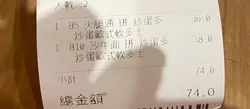 人數 :2
1 05 火腿通 拼 炒蛋多
炒蛋歐式軟多士
1 B10 沙牛面 拼 炒蛋多
炒蛋歐式軟多士
小計 74.0
總金額 74.0